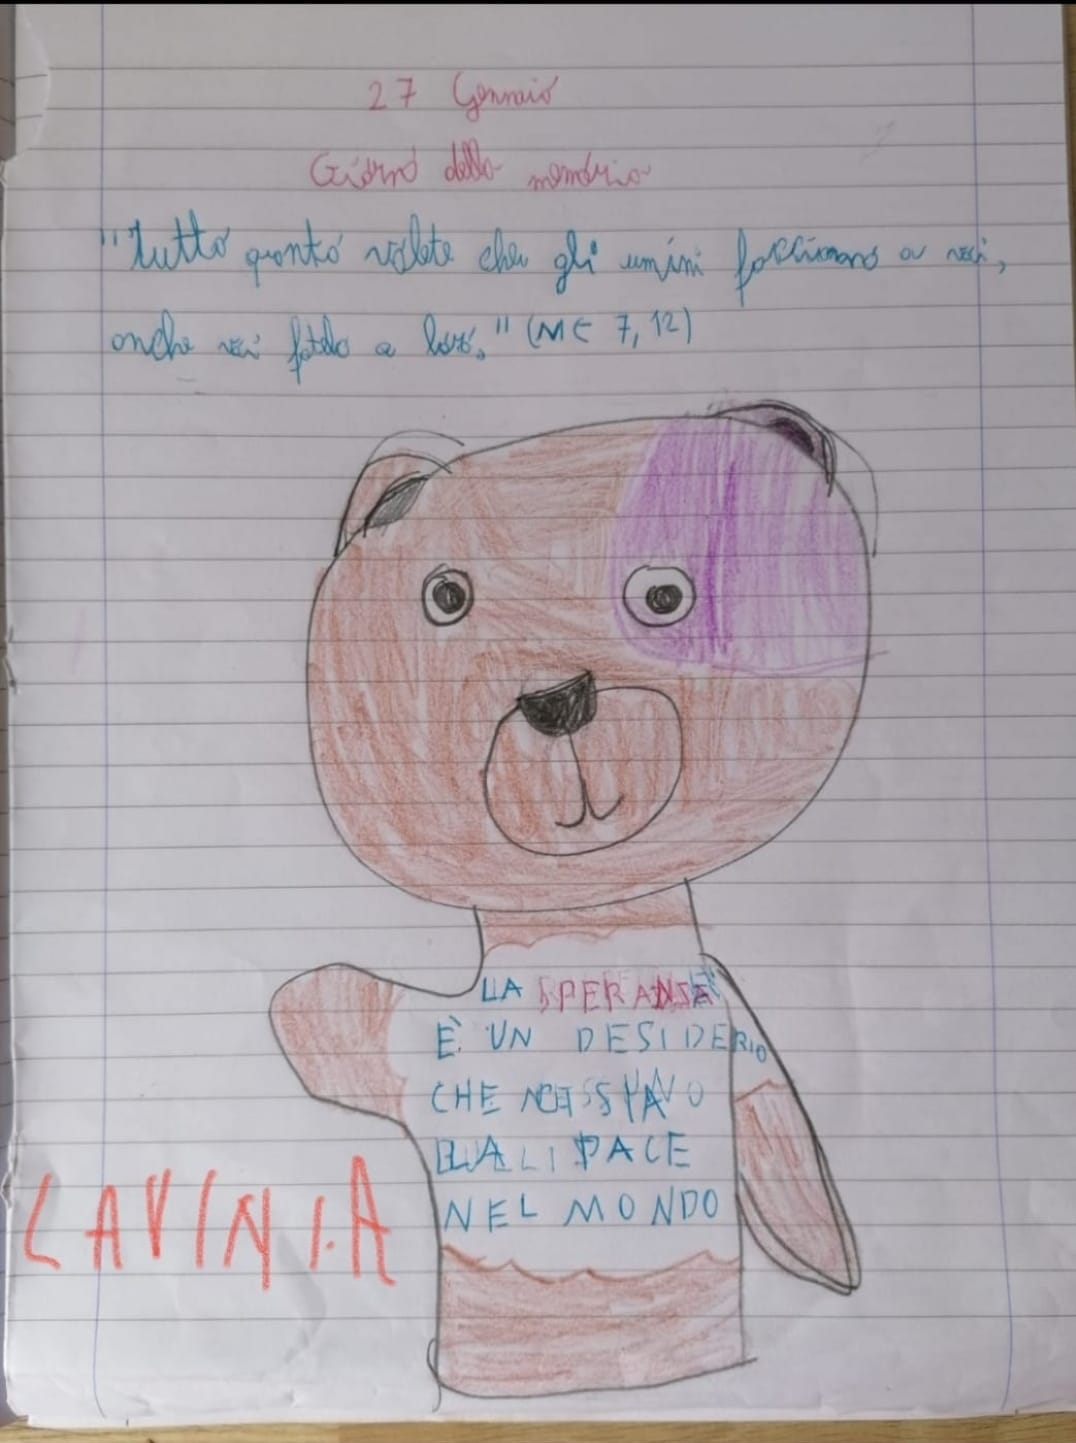 27 Gennaio
Giorno della memoria
"Tutto quanto volete che gli umini facciano a voi,
anche voi fatelo a loro." (Mt 7, 12)
LA SPERANSA
È UN DESIDERIO
CHE
PACE
NEL MONDO
LAVINIA